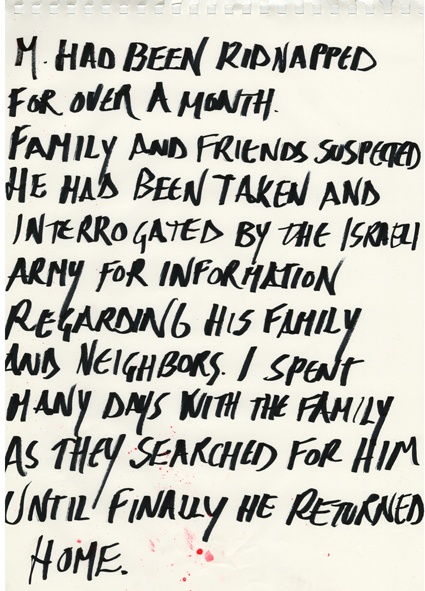 M. HAD BEEN KIDNAPPED
FOR OVER A MONTH.
FAMILY AND FRIENDS SUSPECTED
HE HAD BEEN TAKEN AND
INTERROGATED BY THE ISRAELI
ARMY FOR INFORMATION
REGARDING HIS FAMILY
AND NEIGHBORS. I SPENT
MANY DAYS WITH THE FAMILY
AS THEY SEARCHED FOR HIM
UNTIL FINALLY HE RETURNED
HOME.